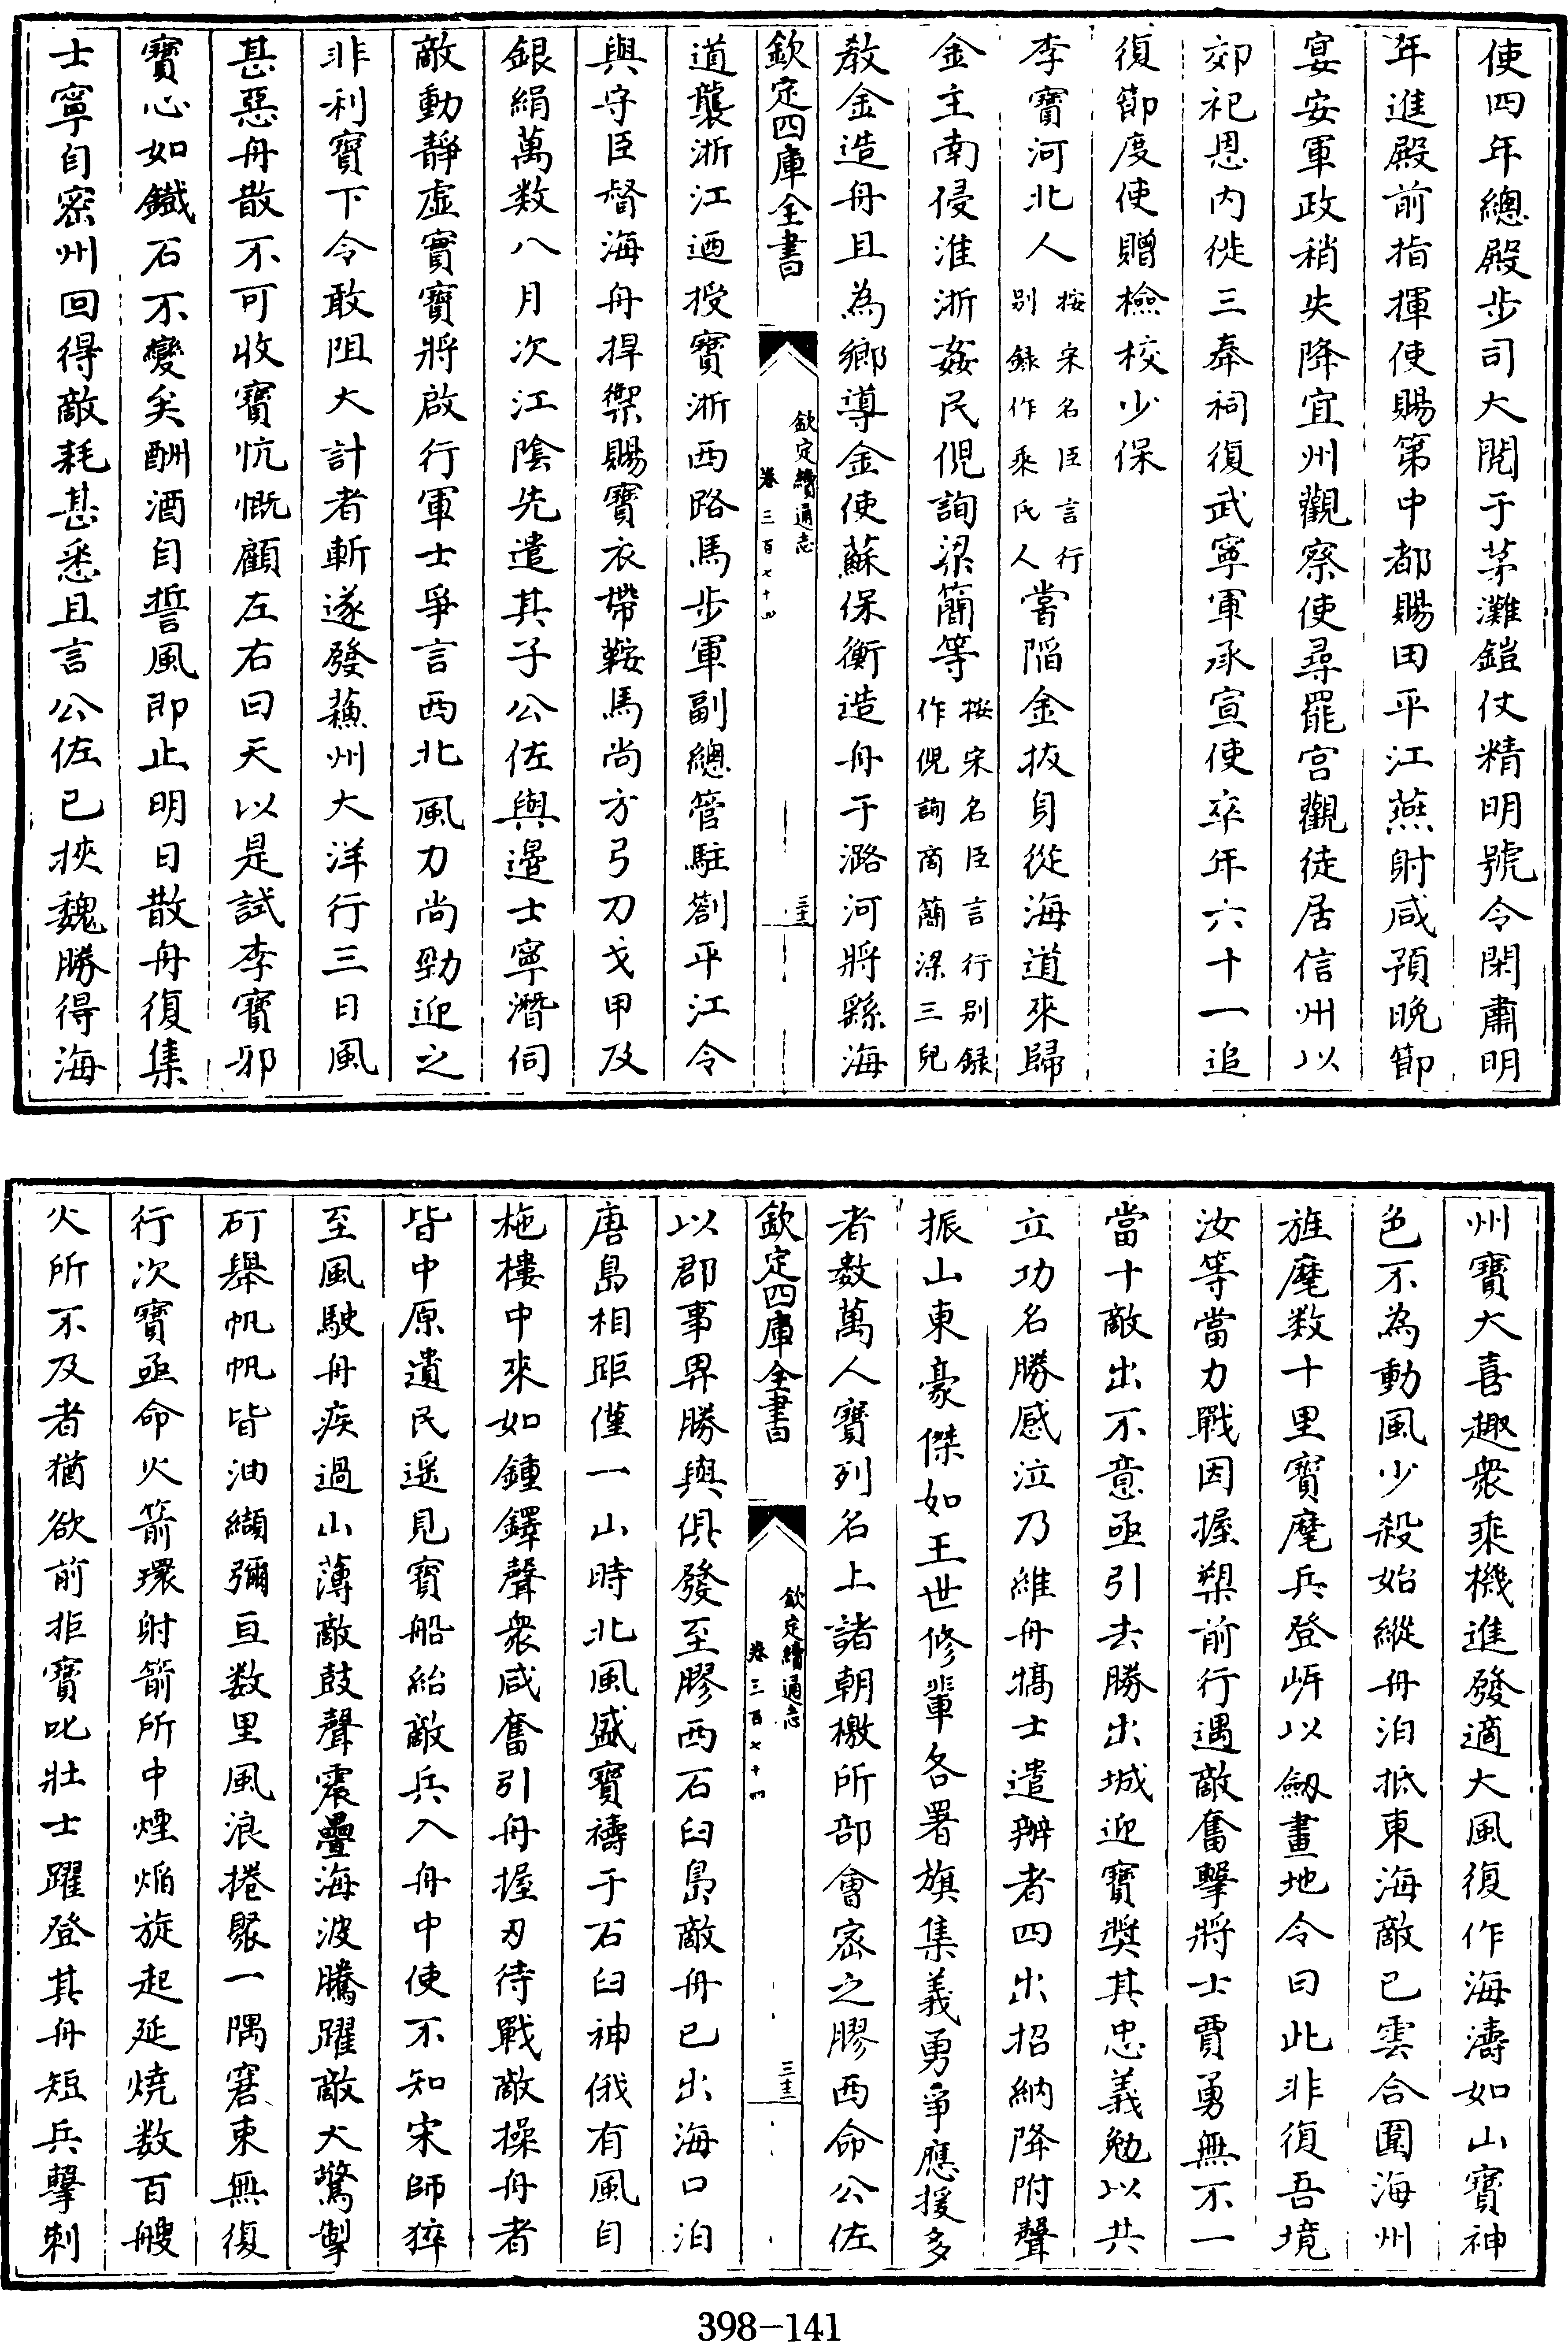 使四年總殿步司大閱于茅灘鎧仗精明號令閑肅明
年進殿前指揮使賜第中都賜田平江燕射咸預晚節
宴安軍政稍失降宜州觀察使尋罷宫觀徒居信州以
郊祀恩内徙三奉祠復武寧軍承宣使卒年六十一追
復節度使贈檢校少保
李寶河北人按宋名臣言行别録作乘氏人嘗陷金拔身從海道來歸
金主南侵淮浙姦民倪詢梁簡等按宋名臣言行别録作倪詢商簡梁三兒
教金造舟且為鄉導金使蘇保衡造舟于潞河將繇海
欽定四庫全書
欽定續通志
卷三百七十四
三十二
道襲浙江迺授寶浙西路馬步軍副總管駐劄平江令
與守臣督海舟捍禦賜寶衣帶鞍馬尚方弓刀戈甲及
銀絹萬數八月次江陰先遣其子公佐與邊士寧潛伺
敵動靜虛實寶將啟行軍士爭言西北風力尚勁迎之
非利寶下令敢阻大計者斬遂發蘇州大洋行三日風
甚惡舟散不可收寶忼慨顧左右曰天以是試李寶邪
寶心如鐵石不變矣酬酒自誓風即止明日散舟復集
士寧自密州回得敵耗甚悉且言公佐已挾魏勝得海
州寶大喜趣衆乘機進發適大風復作海濤如山寶神
色不為動風少殺始縱舟泊抵東海敵已雲合圍海州
旌麾数十里寶麾兵登岍以劔畫地令曰此非復吾境
汝等當力戰因握槊前行遇敵奮擊將士賈勇無不一
當十敵出不意亟引去勝出城迎寶獎其忠義勉以共
立功名勝感泣乃維舟犒士遣辨者四出招納降附聲
振山東豪傑如王世修輩各署旗集義勇爭應援多
者數萬人寶列名上諸朝檄所部會密之膠西命公佐
欽定四庫全書
欽定續通志
卷三百七十四
三十三
以郡事畀勝與俱發至膠西石臼島敵舟已出海口泊
唐島相距僅一山時北風盛寶禱于石臼神俄有風自
柂樓中來如鍾鐸聲衆咸奮引舟握刃待戰敵操舟者
皆中原遺民遥見寶船紿敵兵入舟中使不知宋師猝
至風駛舟疾過山薄敵鼓聲震疊海波騰躍敵大驚掣
矴舉帆帆皆油纈彌亘数里風浪捲聚一隅窘束無復
行次寶亟命火箭環射箭所中煙焰旋起延燒数百艘
火所不及者猶欲前拒寶叱壯士躍登其舟短兵擊刺
398-141